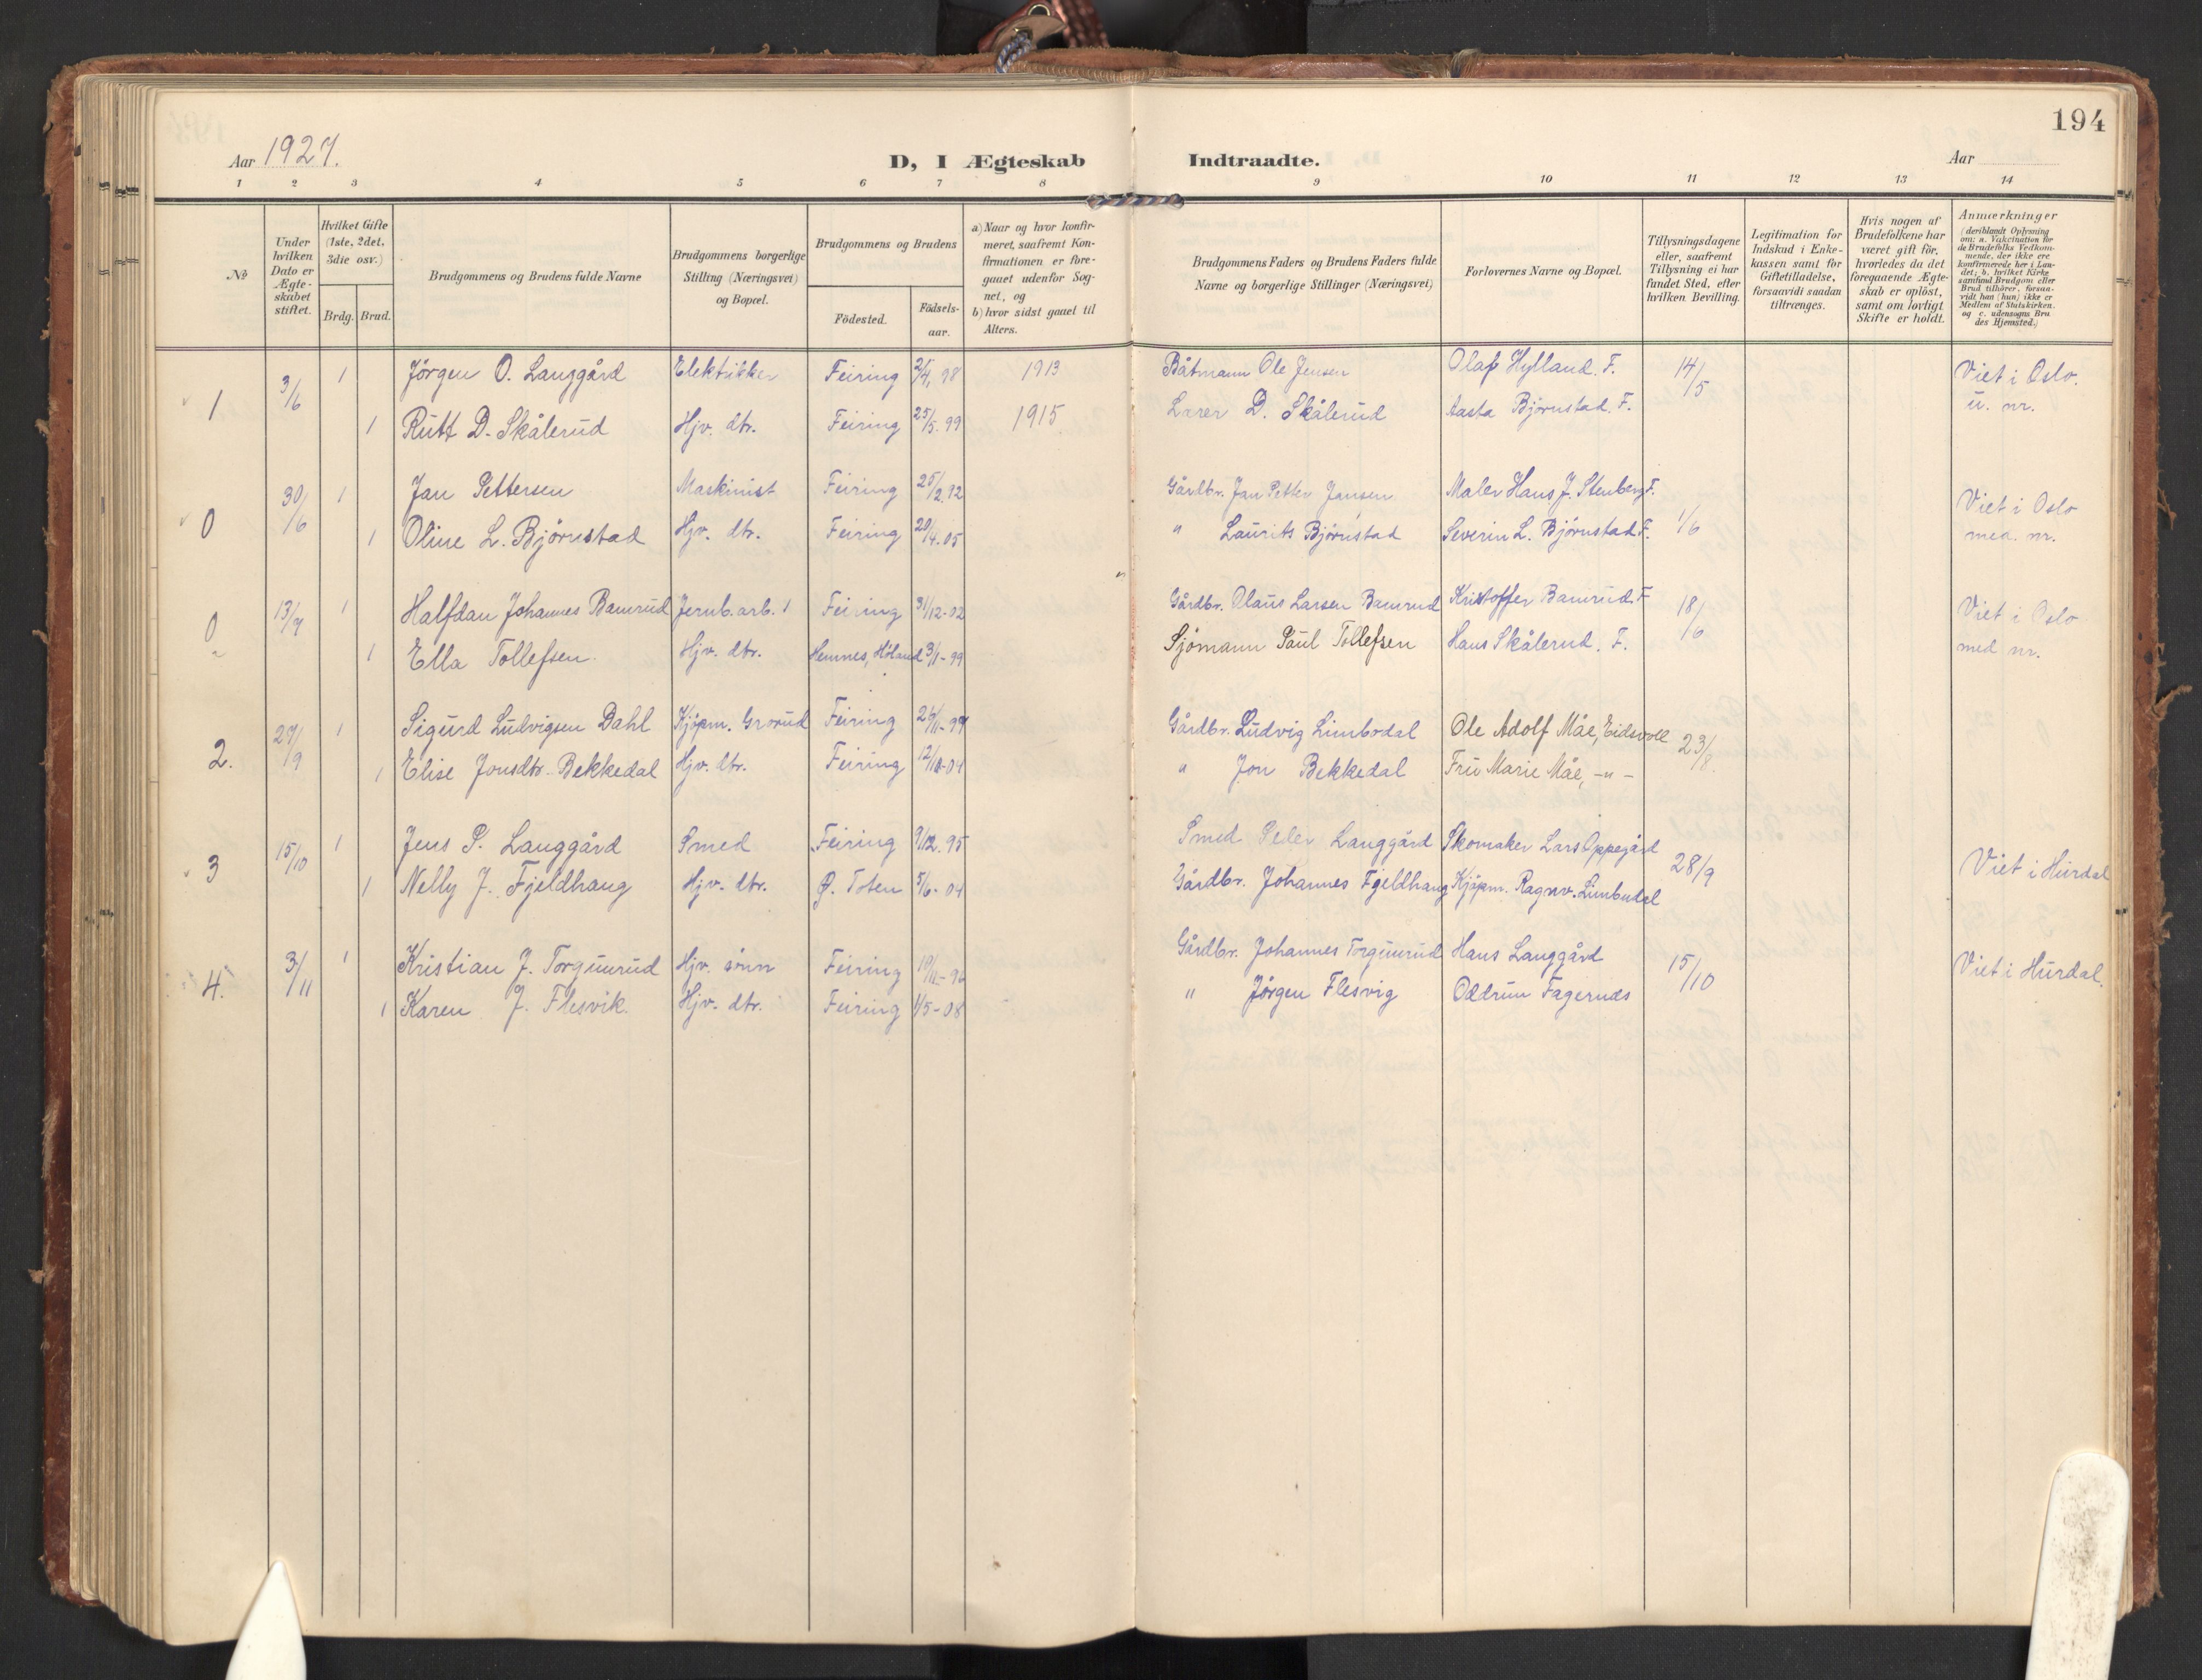 194
Aar 1927.
D, I Ægteskab Indtraadte.
Aar
1 2 3 4 5 6 7 8 9 10 11 12 13 14
No
Under hvilken Dato er Ægteskabet stiftet.
Hvilket Gifte (1ste, 2det, 3die osv.)
Brdg. Brud.
Brudgommens og Brudens fulde Navne
Brudgommens borgerlige Stilling (Næringsvei) og Bopæl.
Brudgommens og Brudens
Födested. Födsels-aar.
a) Naar og hvor konfirmeret, saafremt Konfirmationen er foregaaet udenfor Sognet, og
b) hvor sidst gaaet til Alters.
Brudgommens Faders og Brudens Faders fulde Navne og borgerlige Stillinger (Næringsvei)
Forlovernes Navne og Bopæl.
Tillysningsdagene eller, saafremt Tillysning ei har fundet Sted, efter hvilken Bevilling.
Legitimation for Indskud i Enkekassen samt for Giftetilladelse, forsaavidt saadan tiltrænges.
Hvis nogen af Brudefolkene har været gift för, hvorledes da det foregaaende Ægteskab er oplöst, samt om lovligt Skifte er holdt.
Anmærkninger (deriblandt Oplysning om: a. Vakcination for de Brudefolks Vedkommende, der ikke ere konfirmerede her i Landet; b. hvilket Kirkesamfund Brudgom eller Brud tilhörer, forsaavidt han (hun) ikke er Medlem af Statskirken. og c. udensogns Brudes Hjemsted.)
1 3/6 1 Jörgen O. Langgård Elektriker Feiring 2/4, 98 1913 Båtmann Ole Jensen Olaf Hylland. F. 14/5 Viet i Oslo.
1 Rutt D. Skålerud Hjv. dtr. Feiring 25/5. 99 1915 Lærer D. Skålerud Aasta Björnstad. F. u. nr.
0 30/6 1 Jan Pettersen Maskinist Feiring 25/2. 92 Gårdbr. Jan Petter Jansen Maler Hans J. Stenberg F. 1/6 Viet i Oslo
1 Oline L. Björnstad Hjv. dtr. Feiring 20/4. 05 " Laurits Björnstad Severin L. Björnstad F. nr.
0 13/7 1 Halfdan Johannes Bamrud Jernb. arb. Feiring 31/12-02 Gårdbr. Olaus Larsen Bamrud Kristoffer Bamrud F. 18/6 Viet i Oslo
1 Ella Tollefsen. Hjv. dtr. Hemnes, Höland 3/1-99 Sjömann Paul Tollefsen Hans Skålerud. F. med nr.
2. 27/9 1 Sigurd Ludvigsen Dahl Kjöpm. Grorud Feiring Gårdbr. Ludvig Limbodal Ole Adolf Måe, Eidsvoll 23/8.
1 Elise Jonsdtr. Bekkedal Hjv. dtr. Feiring 12/10-04 " Jon Bekkedal Fru Marie Måe, -"-
3 15/10 1 Jens P. Langgård Smed Feiring 9/12. 95 Smed Peder Langgård Skomaker Lars Oppegård 28/9 Viet i Hurdal
1 Nelly J. Fjeldhaug Hjv. dtr. Ø. Toten 5/6-04 Gårdbr. Johannes Fjeldhaug Kjöpm. Ragnv. Limbodal
4. 3/11 1 Kristian J. Torgunrud Hjv. sönn Feiring Gårdbr. Johannes Torgunrud Hans Langgård 15/10 Viet i Hurdal.
1 Karen J. Flesvik. Hjv. dtr. Feiring 1/5-08 " Jörgen Flesvig Oddrun Fagernes